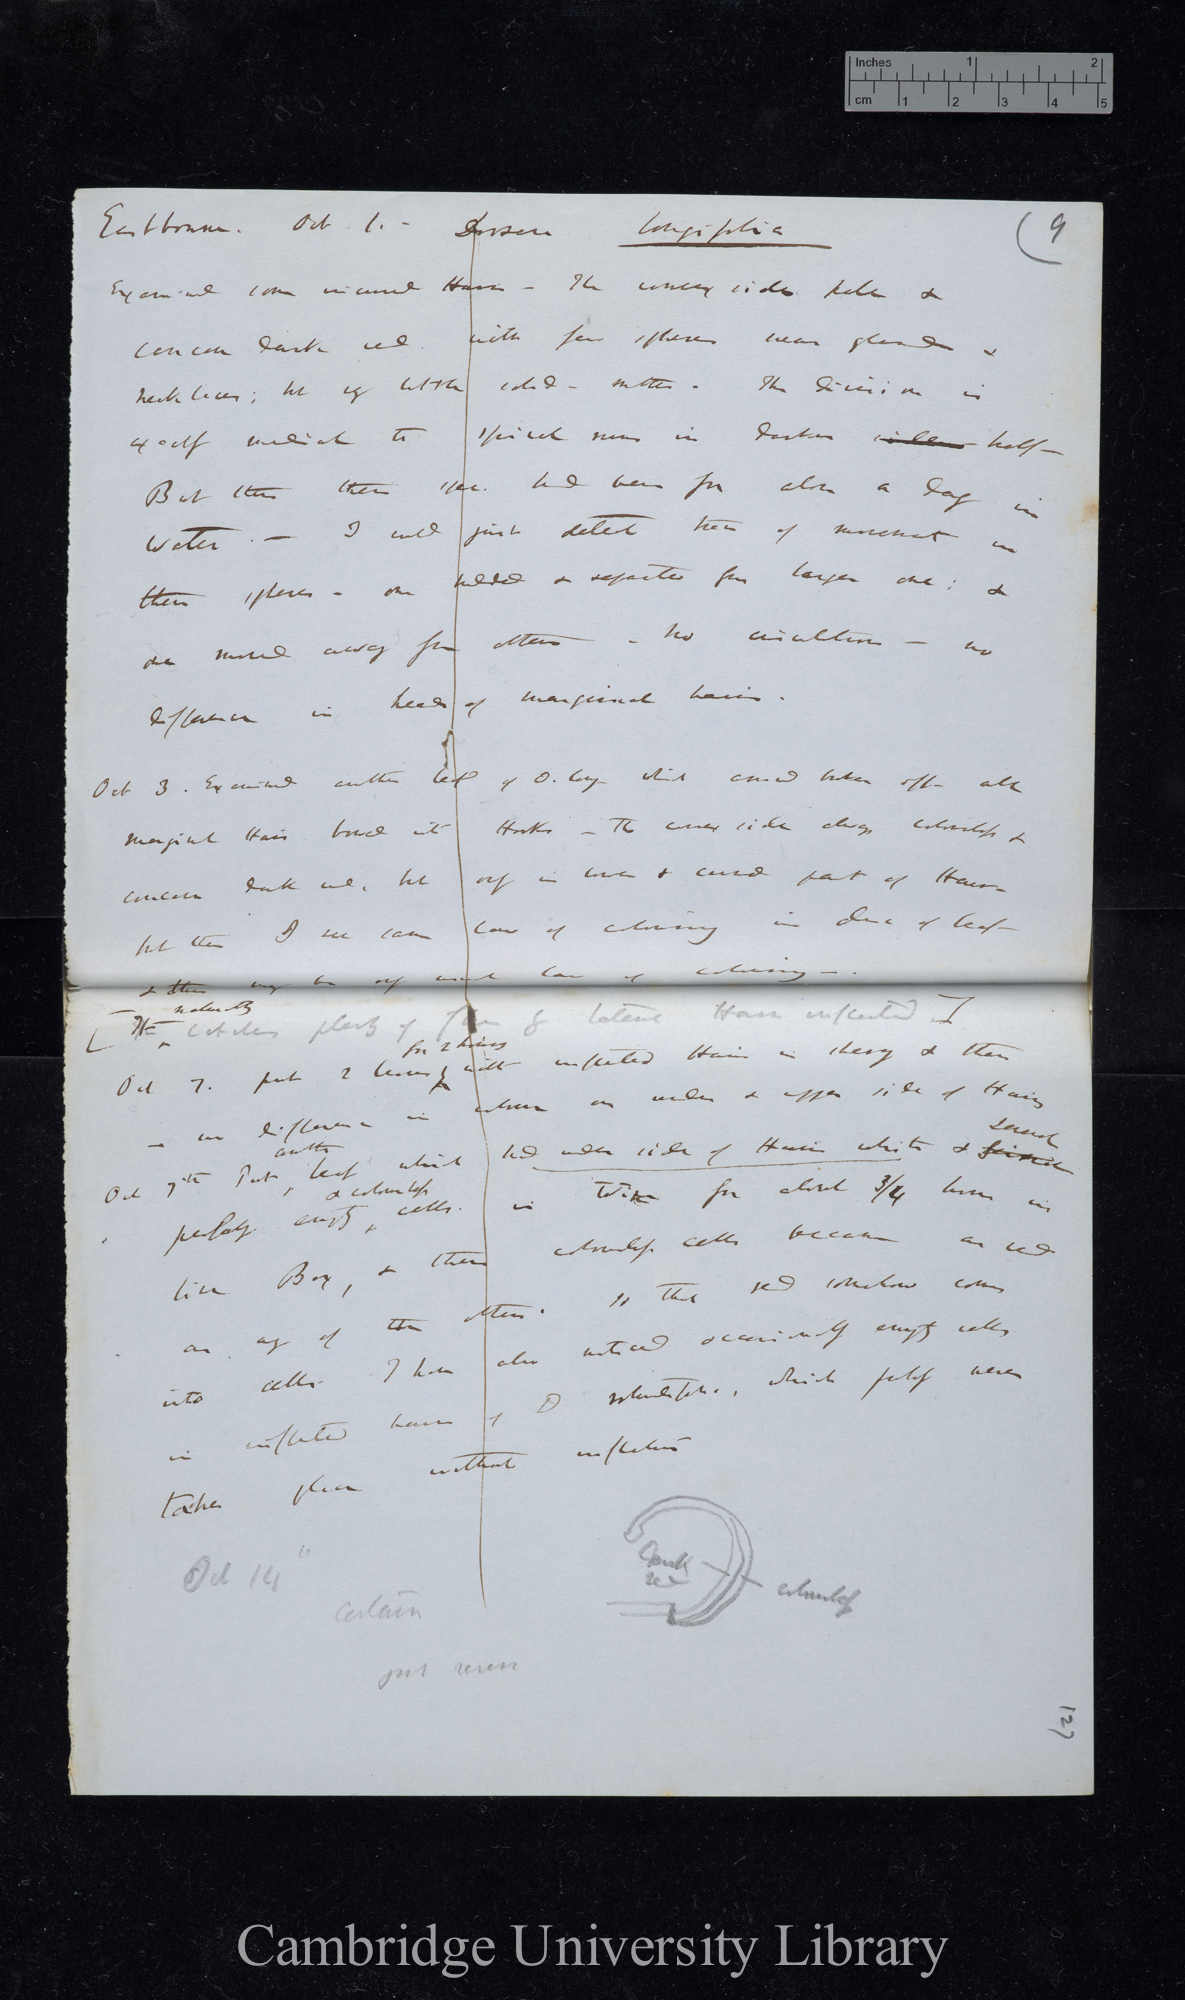 Inches 1 2
cm 1 2 3 4 5
(9
Eastbourne. Oct 1. - Drosera longifolia
Examined some incurved Hairs - The convex side pale &
concave dark red. with few spheres near glands &
necklaces; but of little cold - matter - The division is
exactly medial to spiral in darker half -
But these had been for about a day in
Water. - I could just detect trace of movement in
these spheres - one & separated from larger one; &
one moved away from others - no - no
difference in heads of marginal hairs.
Oct 3. Examined another leaf of D. long which all
marginal Hairs bowed into Hooks - The convex side always colourless &
concave dark red, but only in lower & curved part of Hairs -
but then I see same law of colouring in of leaf -
& this may be only law of colouring -.
[It naturally catches plenty of flies & lateral Hairs inflected]
Oct 7. put 2 leaves for 2 hours with inflected Hairs in & then
no difference in colour on under & upper side of Hairs
Oct 7th Put another leaf which had under side of Hairs white & several
perfectly empty & colourless cells. in for about 3/4 hour in
Box, & these colourless cells became as red
as any of the others. so that red somehow comes
into cells. I have also noticed occasionally empty cells
in inflected hairs of D rotundifolia, which never
takes place without inflection
Dark
red
colourless
Oct 14
certain
(2)
Cambridge University Library